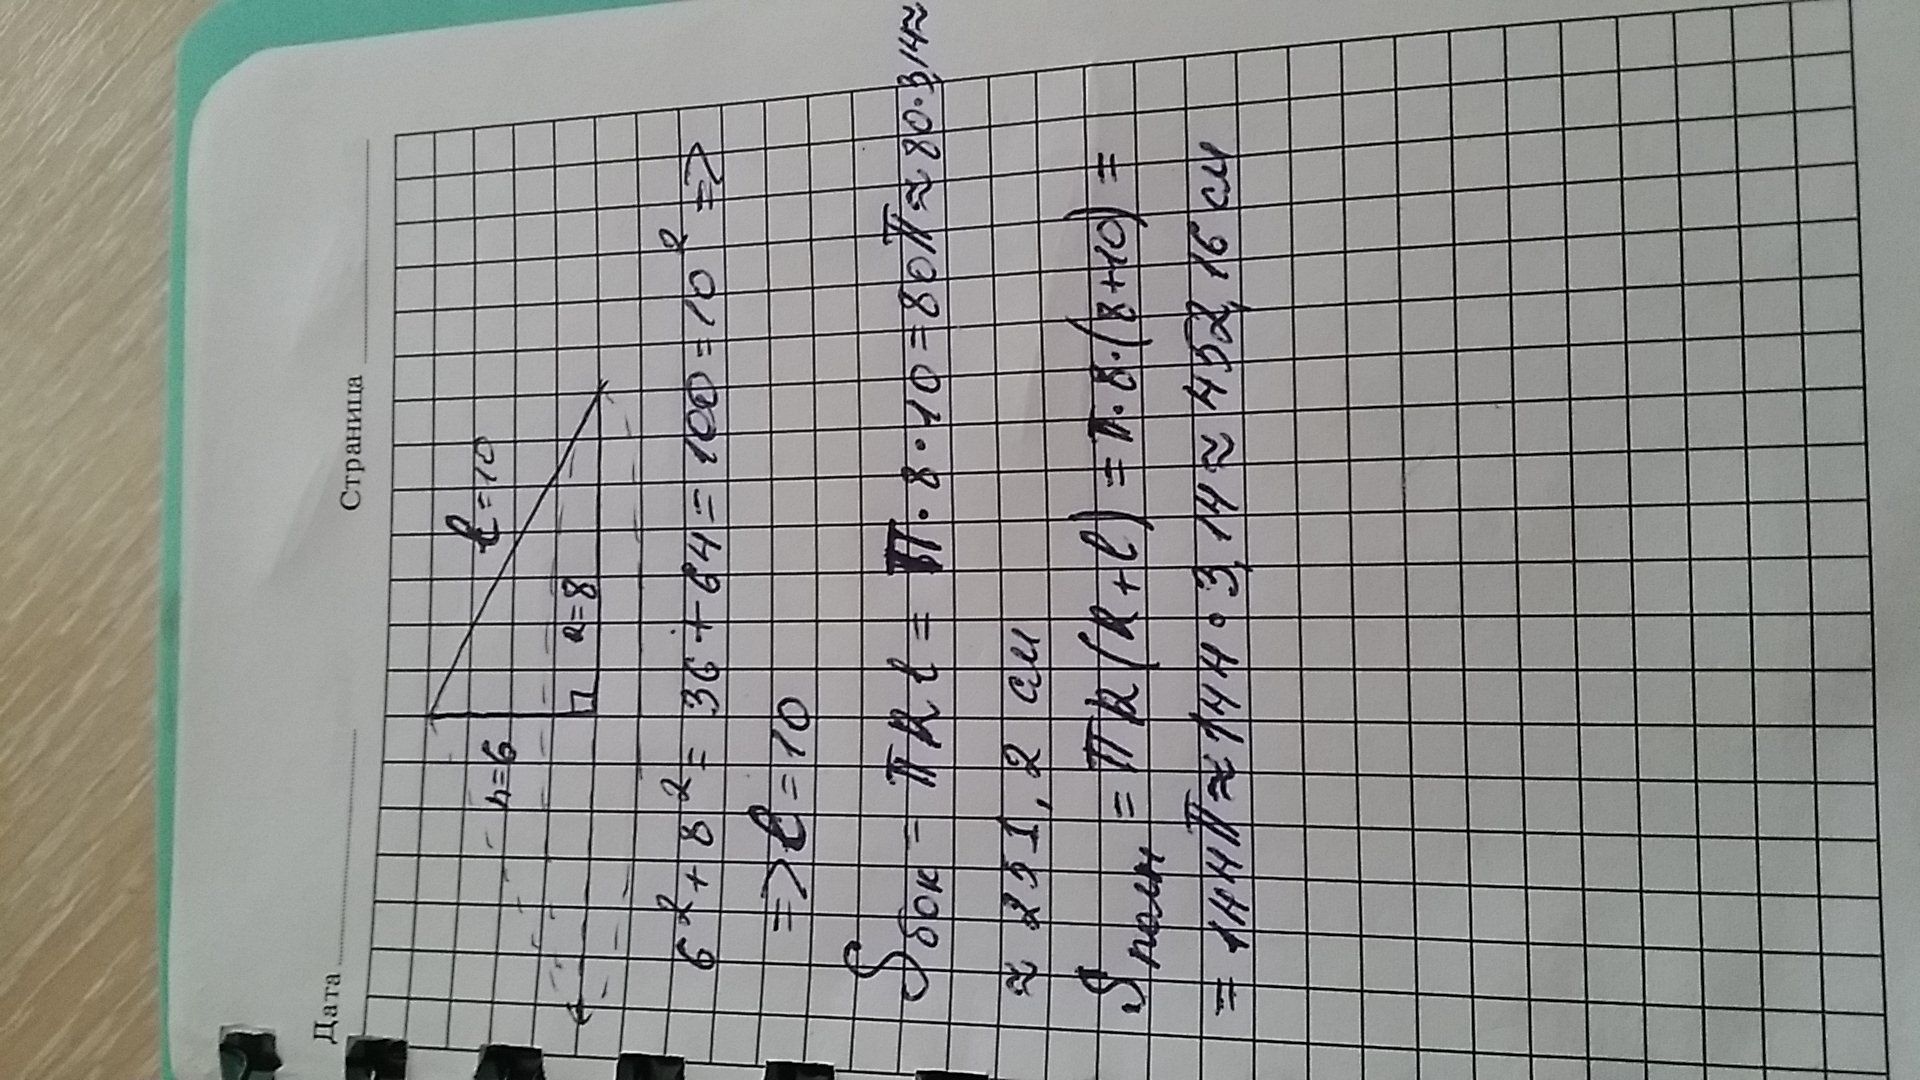 Дата Страница
h=6 l=10
R=8
6²+8²=36+64=100=10² =>
=> l=10
Sбок = πRl = π·8·10=80π≈80·3,14≈
≈ 251,2 см
Sполн = πR(R+l)=π·8·(8+10)=
=144π≈144·3,14≈452,16 см